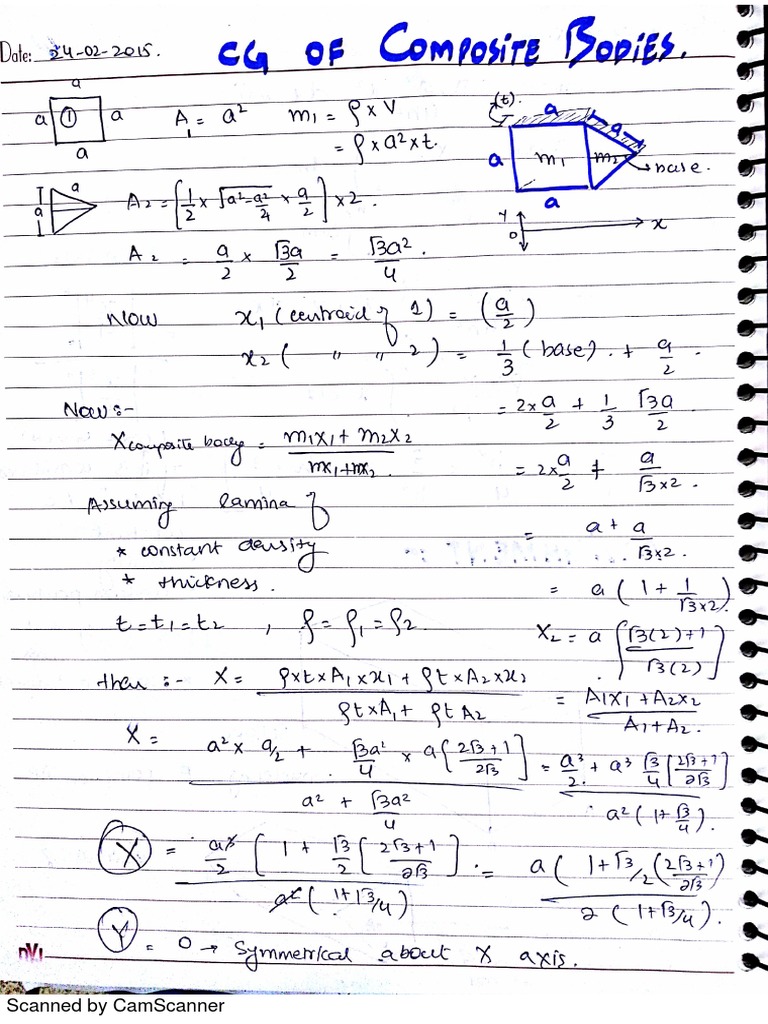 Date: 24-02-2015. CG OF COMPOSITE BODIES.
a
a ① a
a
A₁ = a²
m₁ = ρ x V
= ρ x a² x t.
(t).
a
a
a m₁ m₂ → base.
a
Y
0 x
a
a
A₂ = [1/2 x √(a² - a²/4) x a/2] x 2.
A₂ = a/2 x √3a/2 = √3a²/4.
Now x₁ (centroid of 1) = (a/2)
x₂ ( " " 2) = 1/3 (base) . + a/2 .
Now :-
= 2x a/2 + 1/3 √3a/2
X composite body = (m₁x₁ + m₂x₂)/(mx₁+mx₂.
= 2x a/2 + a/(√3x2.
Assuming lamina of
* constant density
= a + a/(√3x2.
* thickness.
= a (1 + 1/(√3x2)).
t = t₁ = t₂ , ρ = ρ₁ = ρ₂.
X₂ = a [(√3(2)+1)/(√3(2))]
then :- X = (ρxtxA₁xx₁ + ρtxA₂xx₂)/(ρtxA₁ + ρtA₂) = (A₁X₁ + A₂x₂)/(A₁+A₂.
X = (a² x a/2 + √3a²/4 x a[(2√3+1)/2√3])/(a² + √3a²/4) = (a³/2. + a³ √3/4 [(2√3+1)/2√3])/(a² (1+√3/4).
X = (a³/2 [1 + √3/2 [(2√3+1)/2√3])/(a² (1+√3/4) = (a (1+√3/2 ((2√3+1)/2√3))/(2 (1+√3/4).
Y = 0 → Symmetrical about X axis.
nVi
Scanned by CamScanner